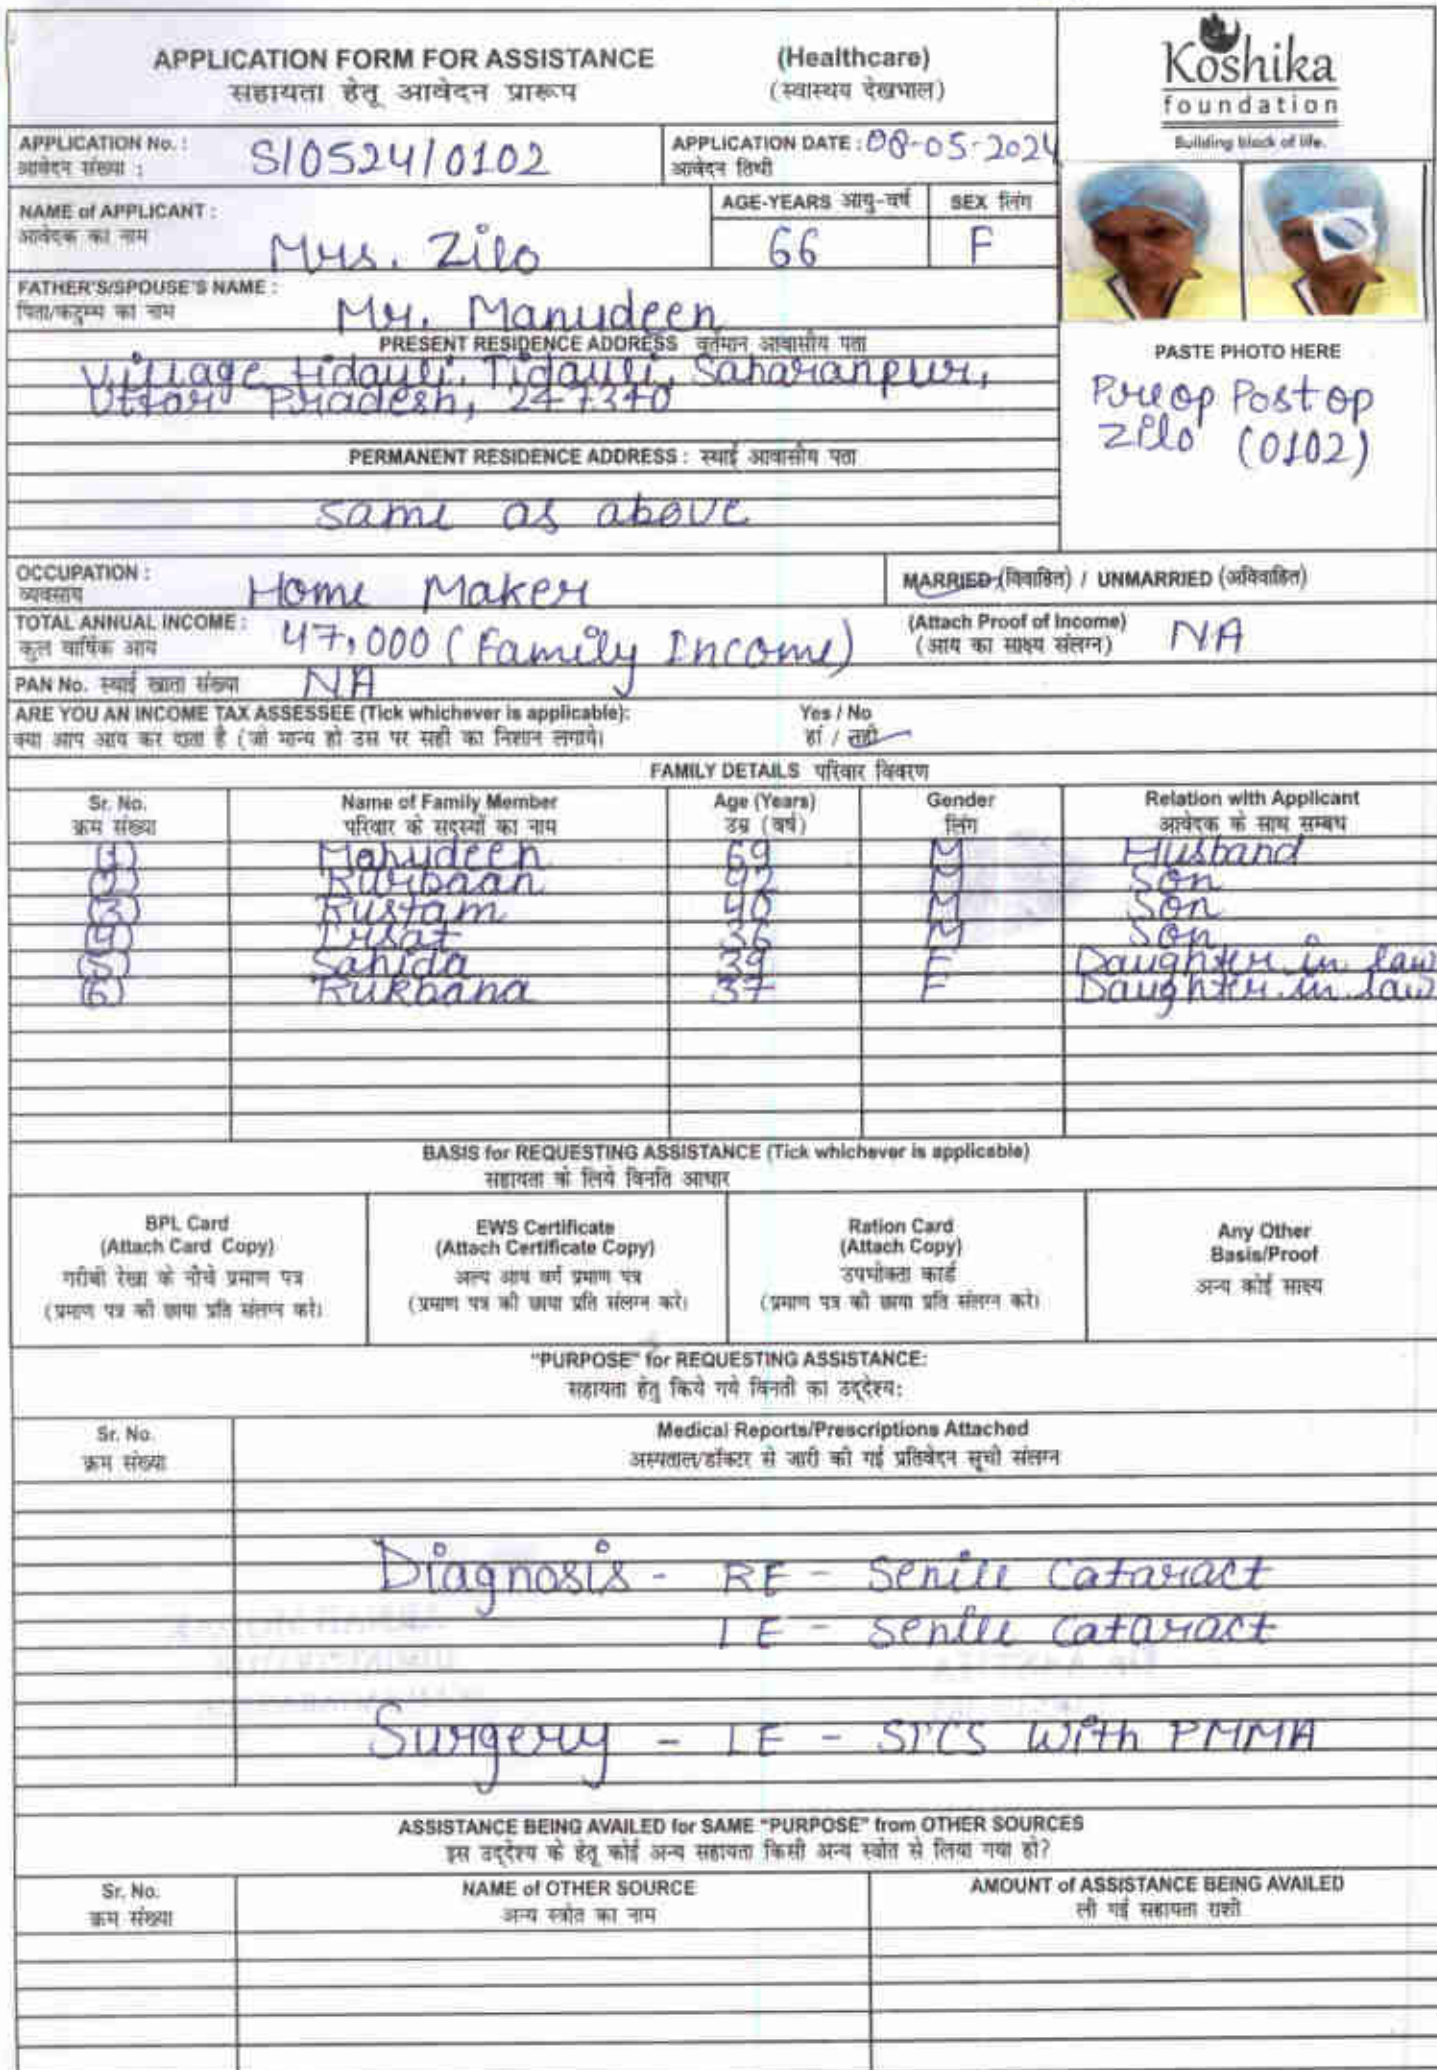 APPLICATION FORM FOR ASSISTANCE (Healthcare)
सहायता हेतू आवेदन प्रारूप (स्वास्थय देखभाल)
Koshika
foundation
Building block of life.
APPLICATION No. : S/0524/0102
आवेदन संख्या :
APPLICATION DATE : 08-05-2024
आवेदन तिथी
NAME of APPLICANT : Mrs. Zilo
आवेदक का नाम
AGE-YEARS आयु-वर्ष 66
SEX लिंग F
FATHER'S/SPOUSE'S NAME : Mr. Manudeen
पिता/कटुम्म का नाम
PRESENT RESIDENCE ADDRESS वर्तमान आवासीय पता
Village tidauli, Tidauli, Saharanpur,
Uttar Pradesh, 247340
PASTE PHOTO HERE
Preop Post op
Zilo (0102)
PERMANENT RESIDENCE ADDRESS : स्थाई आवासीय पता
same as above
OCCUPATION : Home Maker
व्यवसाय
MARRIED (विवाहित) / UNMARRIED (अविवाहित)
TOTAL ANNUAL INCOME : 47,000 (Family Income)
कुल वार्षिक आय
(Attach Proof of Income) NA
(आय का साक्ष्य संलग्न)
PAN No. स्थाई खाता संख्या NA
ARE YOU AN INCOME TAX ASSESSEE (Tick whichever is applicable): Yes / No
क्या आप आय कर दाता है (जो मान्य हो उस पर सही का निशान लगाये। हां / नही
FAMILY DETAILS परिवार विवरण
Sr. No. Name of Family Member Age (Years) Gender Relation with Applicant
क्रम संख्या परिवार के सदस्यों का नाम उम्र (वर्ष) लिंग आवेदक के साथ सम्बध
(1) Manudeen 69 M Husband
(2) Kurbaan 42 M Son
(3) Rustam 40 M Son
(4) Irsat 36 M Son
(5) Sahida 39 F Daughter in law
(6) Rukbana 37 F Daughter in law
BASIS for REQUESTING ASSISTANCE (Tick whichever is applicable)
सहायता के लिये विनति आधार
BPL Card
(Attach Card Copy)
गरीबी रेखा के नीचे प्रमाण पत्र
(प्रमाण पत्र की छाया प्रति संलग्न करे।
EWS Certificate
(Attach Certificate Copy)
अल्प आय वर्ग प्रमाण पत्र
(प्रमाण पत्र की छाया प्रति संलग्न करे।
Ration Card
(Attach Copy)
उपभोक्ता कार्ड
(प्रमाण पत्र की छाया प्रति संलग्न करे।
Any Other
Basis/Proof
अन्य कोई साक्ष्य
"PURPOSE" for REQUESTING ASSISTANCE:
सहायता हेतु किये गये विनती का उद्देश्य:
Sr. No. Medical Reports/Prescriptions Attached
क्रम संख्या अस्पताल/डॉक्टर से जारी की गई प्रतिवेदन सूची संलग्न
Diagnosis - RE - Senile Cataract
LE - Senile Cataract
Surgery - LE - SICS With PMMA
ASSISTANCE BEING AVAILED for SAME "PURPOSE" from OTHER SOURCES
इस उद्देश्य के हेतू कोई अन्य सहायता किसी अन्य स्त्रोत से लिया गया हो?
Sr. No. NAME of OTHER SOURCE AMOUNT of ASSISTANCE BEING AVAILED
क्रम संख्या अन्य स्त्रोत का नाम ली गई सहायता राशी